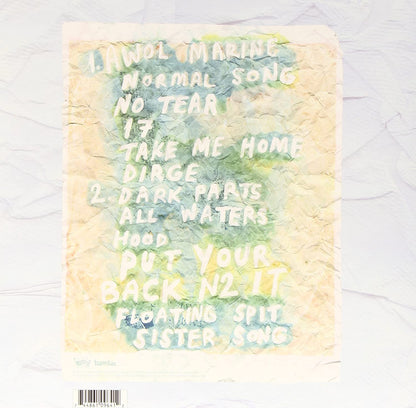 1. AWOL MARINE
NORMAL SONG
NO TEAR
17
TAKE ME HOME
DIRGE
2. DARK PARTS
ALL WATERS
HOOD
PUT YOUR
BACK N2 IT
FLOATING SPIT
SISTER SONG